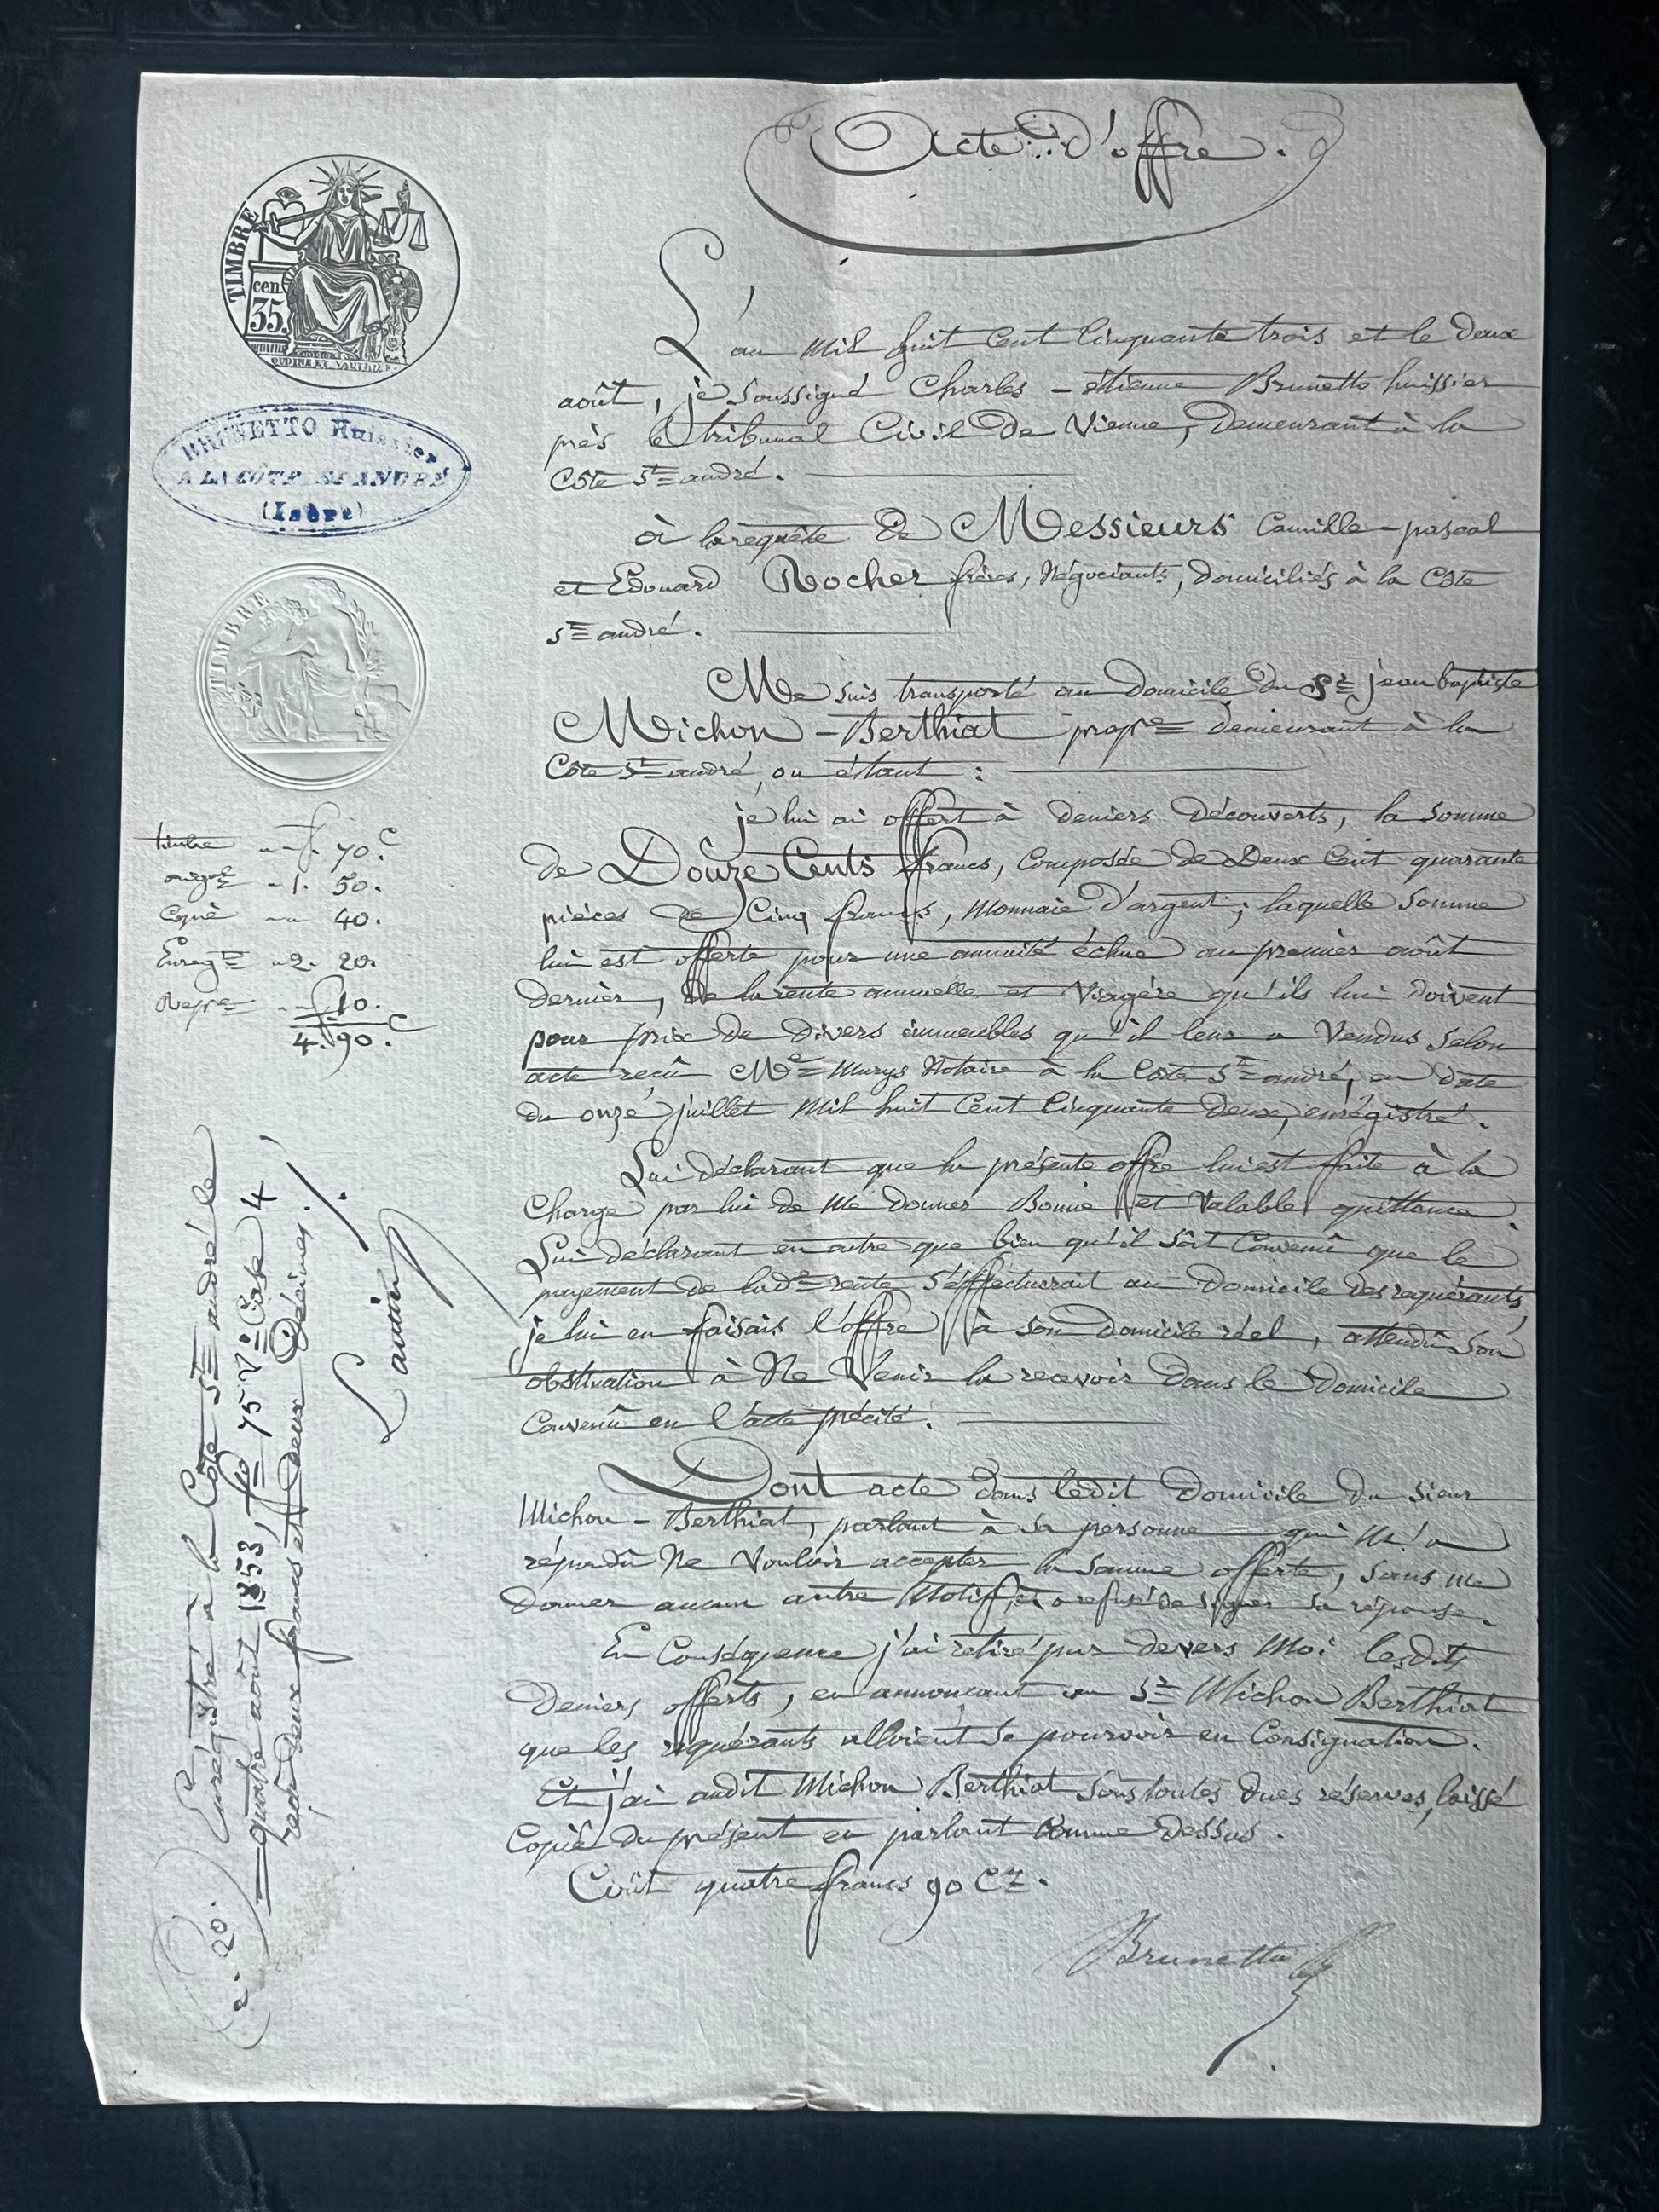 Acte d'offre.
L'an mil huit cent cinquante trois et le deux
août, je soussigné Charles-étienne Brunetto huissier
près le tribunal Civil de Vienne, demeurant à la
Côte St andré.
à la requête de Messieurs Camille-pascal
et Edouard Rocher frères, Négociants, domiciliés à la Côte
St andré.
Me suis transporté au domicile du Sr jean baptiste
Michon-Berthiat propre demeurant à la
Côte St andré, ou étant :
je lui ai offert à deniers découverts, la somme
de Douze Cents francs, Composée de Deux Cent quarante
pièces de Cinq francs, Monnaie d'argent; laquelle somme
lui est offerte pour une annuité échue au premier août
dernier, de la rente annuelle et Viagère qu'ils lui doivent
pour prix de divers immeubles qu'il leur a Vendus selon
acte reçû Me Murys Notaire à la Côte St andré, en date
du onze juillet Mil huit Cent Cinquante deux, enrégistré.
Lui déclarant que la présente offre lui est faite à la
Charge par lui de me donner Bonne et Valable quittance.
Lui déclarant en outre que bien qu'il soit Convenû que le
payement de lade rente s'effectuerait au Domicile des requérants,
je lui en faisais l'offre à son domicile réel, attendu son
obstination à Ne Venir la recevoir dans le Domicile
Convenû en l'acte précité.
Dont acte dans ledit Domicile du sieur
Michon-Berthiat, parlant à sa personne qui M'a
répondû Ne Vouloir accepter la somme offerte, sans me
donner aucun autre Motif, et a refusé de signer sa réponse.
En Conséquence j'ai retiré par devers Moi lesdits
deniers offerts, en annonçant au Sr Michon Berthiat
que les requérants alloient se pourvoir en Consignation.
Et j'ai audit Michon Berthiat sous toutes dues réserves, laissé
Copie du présent en parlant Comme dessus.
Coût quatre francs 90 Cs.
Brunetto
TIMBRE
cen.
35.
BRUNETTO Huissier
A LA CÔTE ST ANDRÉ
(Isère)
TIMBRE
timbre - f. 70.c
origl - 1. 50.
Copie - " 40.
Enregt - 2. 20.
Repre - f. 10.
4.f 90.c
Enrégistré à la Côte St andré le
quatre août 1853, fo 75 Vo Case 4
reçu deux francs et deux Décimes.
2. 20.